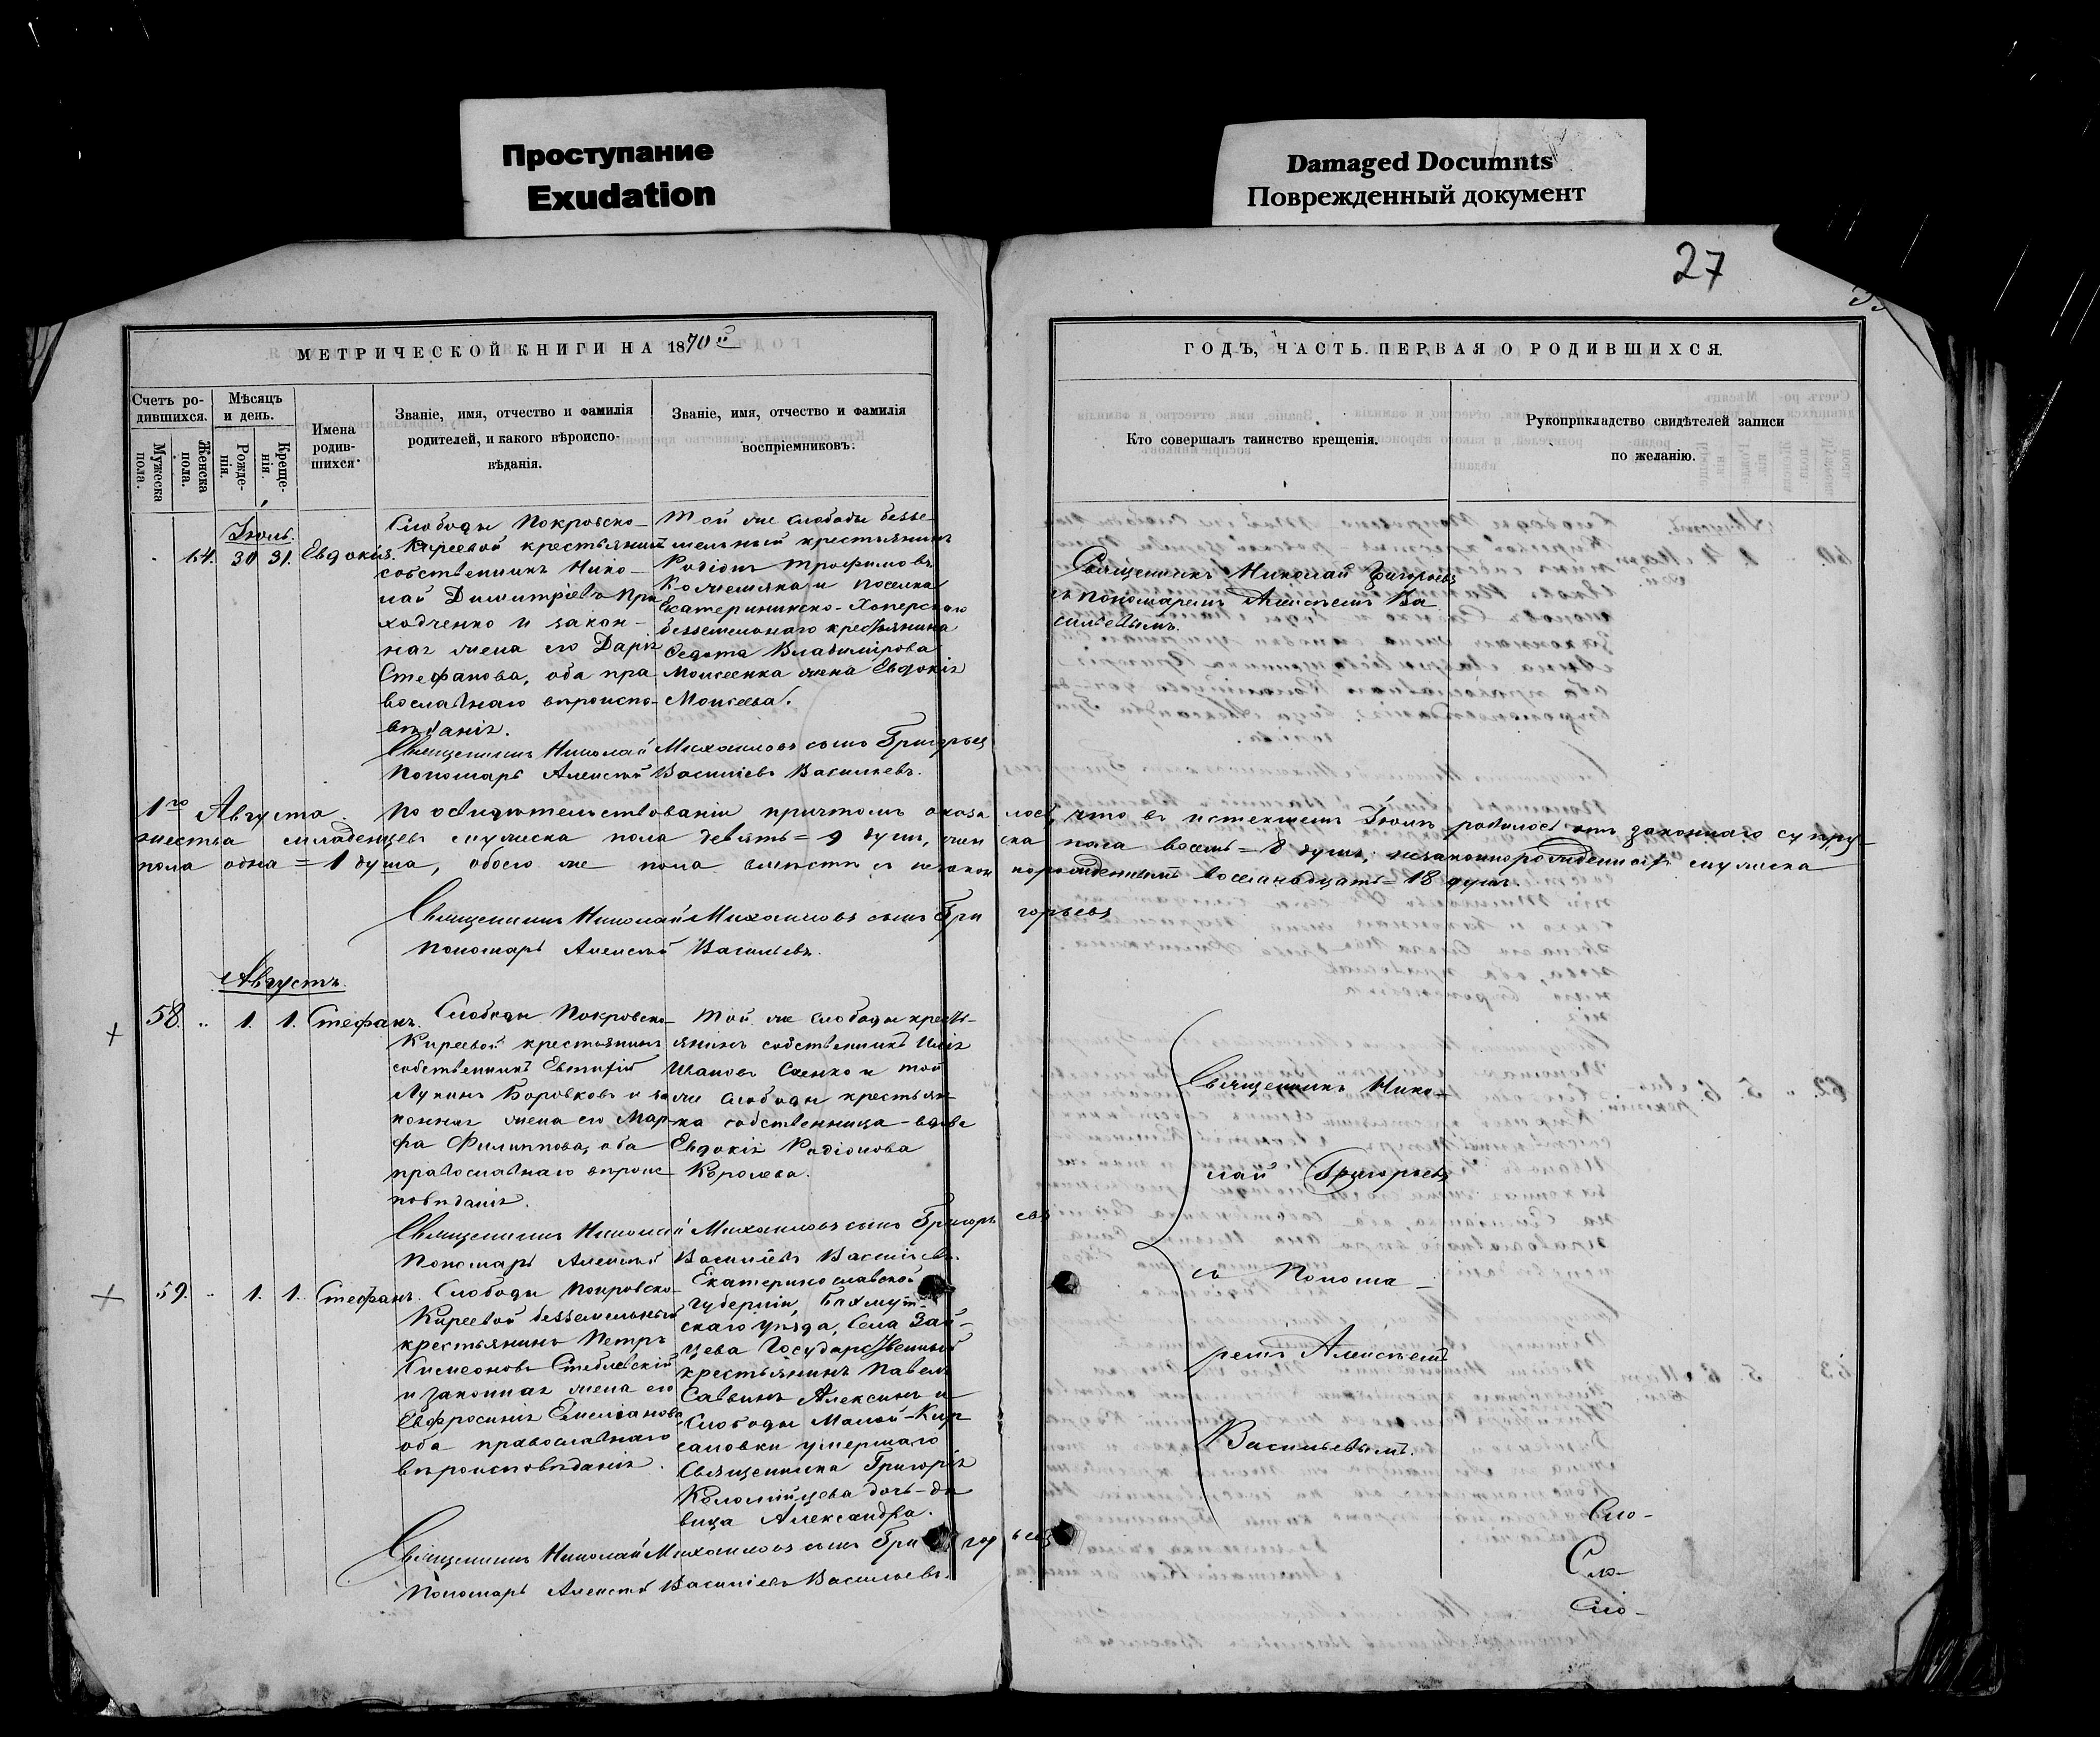 Проступание
Exudation
Damaged Documnts
Поврежденный документ
27
МЕТРИЧЕСКОЙ КНИГИ НА 1870й
ГОДЪ, ЧАСТЬ ПЕРВАЯ О РОДИВШИХСЯ.
Счетъ ро-
дившихся.
Мѣсяцъ
и день.
Мужеска
пола.
Женска
пола.
Рожде-
нія.
Креще-
нія.
Имена
родив-
шихся
Званіе, имя, отчество и фамилія
родителей, и какого вѣроиспо-
вѣданія.
Званіе, имя, отчество и фамилія
воспріемниковъ.
Кто совершалъ таинство крещенія.
Рукоприкладство свидѣтелей записи
по желанію.
Іюль.
64. 30 31. Евдокія.
Слободы Покровско-
Киреевой крестьянинъ
собственникъ Нико-
лай Димитріевъ При
ходченко и закон-
ная жена его Дарія
Стефанова, оба пра
вославнаго вѣроиспо-
вѣданія.
Той же слободы беззе-
мельный крестьянинъ
Родіонъ Трофимовъ
и поселка
Екатериninско-Хоперскаго
безземельнаго крестьянина
Федота Владимірова
Моисеенка жена Евдокія
Моисеева.
Священникъ Николай Григорьевъ
съ пономаремъ Алексѣемъ Ва
сильевымъ.
Священникъ Николай Михаиловъ сынъ Григорьевъ
Пономарь Алексѣй Василіевъ Васильевъ.
1го Августа. По освидѣтельствованіи причтомъ оказалось, что въ истекшемъ Іюлѣ родилось отъ законнаго супру-
жества младенцевъ мужеска пола девять = 9 душъ, женска пола восемь = 8 душъ, незаконнорожденныхъ мужеска
пола одна = 1 душа, обоего же пола вмѣстѣ съ незаконнорожденнымъ восемнадцать = 18 душъ.
Священникъ Николай Михаиловъ сынъ Григорьевъ
Пономарь Алексѣй Васильевъ.
Августъ.
58. " 1. 1. Стефанъ.
Слободы Покровско-
Киреевой крестьянинъ
собственникъ Евтихій
Лукинъ Боровковъ и за
конная жена его Мар-
фа Филиппова, оба
православнаго вѣроис-
повѣданія.
Той же слободы кресть-
янинъ собственникъ Илія
Ивановъ Саенко и той
же слободы крестьян-
ка собственница-вдова
Евдокія Родіонова
Королева.
Священникъ Нико-
лай Григорьевъ
съ Понома-
ремъ Алексѣемъ
Васильевымъ.
Священникъ Николай Михаиловъ сынъ Григорьевъ
Пономарь Алексѣй Василіевъ Васильевъ.
59. " 1. 1. Стефанъ.
Слободы Покровско-
Киреевой безземельный
крестьянинъ Петръ
Симеоновъ Стеблевскій
и законная жена его
Евфросинія Емеліанова
оба православнаго
вѣроисповѣданія.
Екатеринославской
губерніи, Бахмут-
скаго уѣзда, Села Зай-
цева Государственный
крестьянинъ Павелъ
Саввинъ Алексинъ и
Слободы Малой-Кир
сановки умершаго
Священника Григорія
Коломійцева дочь-дѣ
вица Александра.
Священникъ Николай Михаиловъ сынъ Григорьевъ
Пономарь Алексѣй Василіевъ Васильевъ.
Сло-
Сло-
Сло-